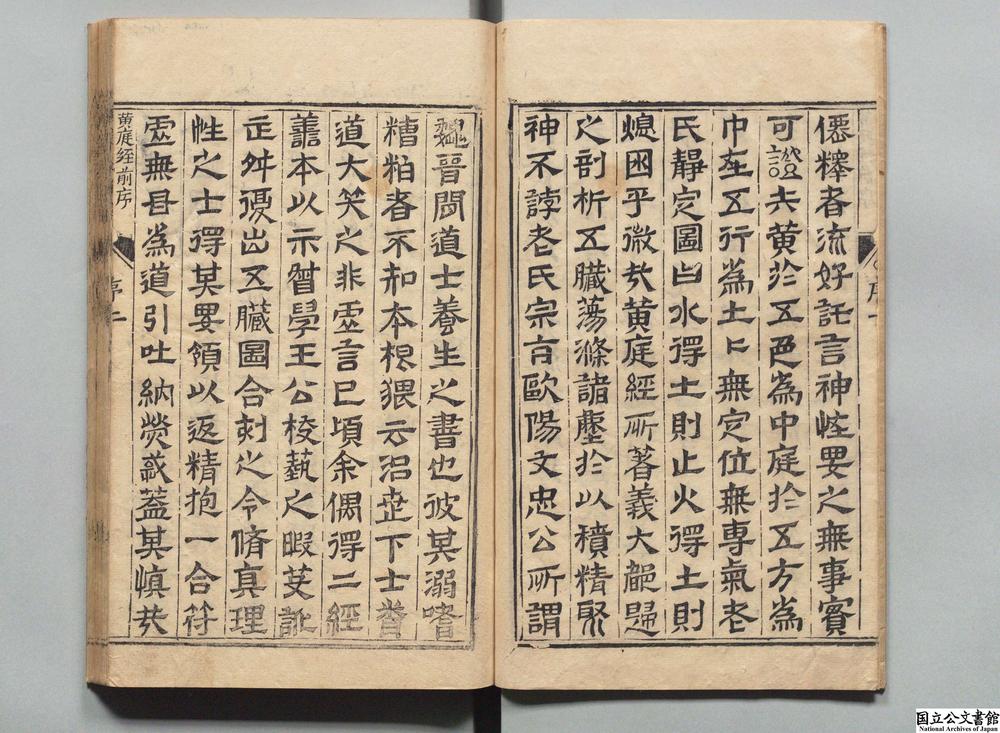 僊釋者流好託言神怪要之無事實
可證夫黄於五色為中庭於五方為
中在五行為土土無定位無專氣老
氏靜定圖曰水得土則止火得土則
熄困乎微哉黄庭經所著義大都歸
之剖析五臟蕩滌諸塵於以積精聚
神不誖老氏宗旨歐陽文忠公所謂
序一
魏晉閒道士養生之書也彼其溺嗜
糟粕者不知本根猥云沿世下士聞
道大笑之非虛言已頃余偶得二經
善本以示督學王公校藝之暇芟訛
正舛復出五臟圖合刻之令脩真理
性之士得其要領以返精抱一合符
虛無毋為道引吐納熒惑蓋其慎哉
黄庭經前序
序二
国立公文書館
National Archives of Japan